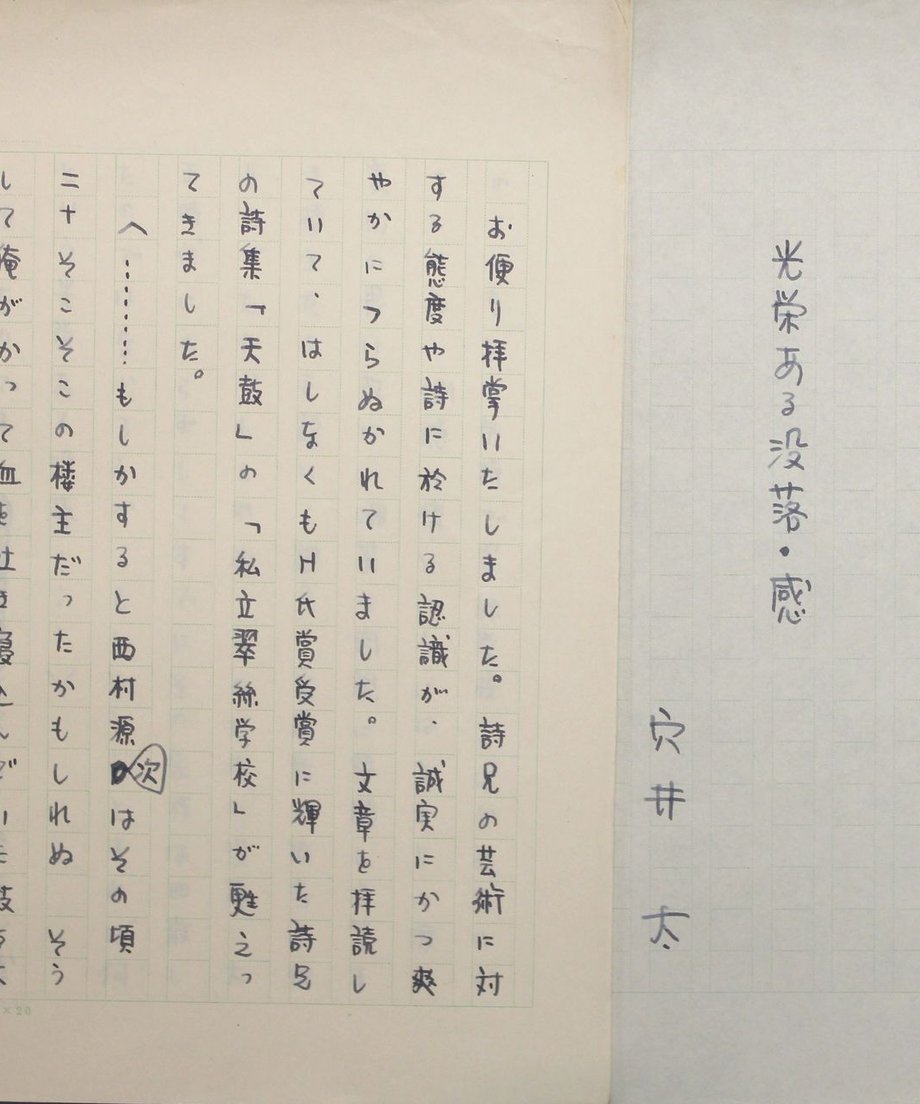 光栄ある没落・感
穴井 太
お便り拝掌いたしました。詩兄の芸術に対
する態度や詩に於ける認識が、誠実にかつ爽
やかにつらぬかれていました。文章を拝読し
ていて、はしなくもH氏賞受賞に輝いた詩兄
の詩集「天鼓」の「私立翠絲学校」が甦えっ
てきました。
へ………もしかすると西村源次はその頃
二十そこそこの楼主だったかもしれぬ そう
して俺がかつて血を吐き寝込んでいた
×20